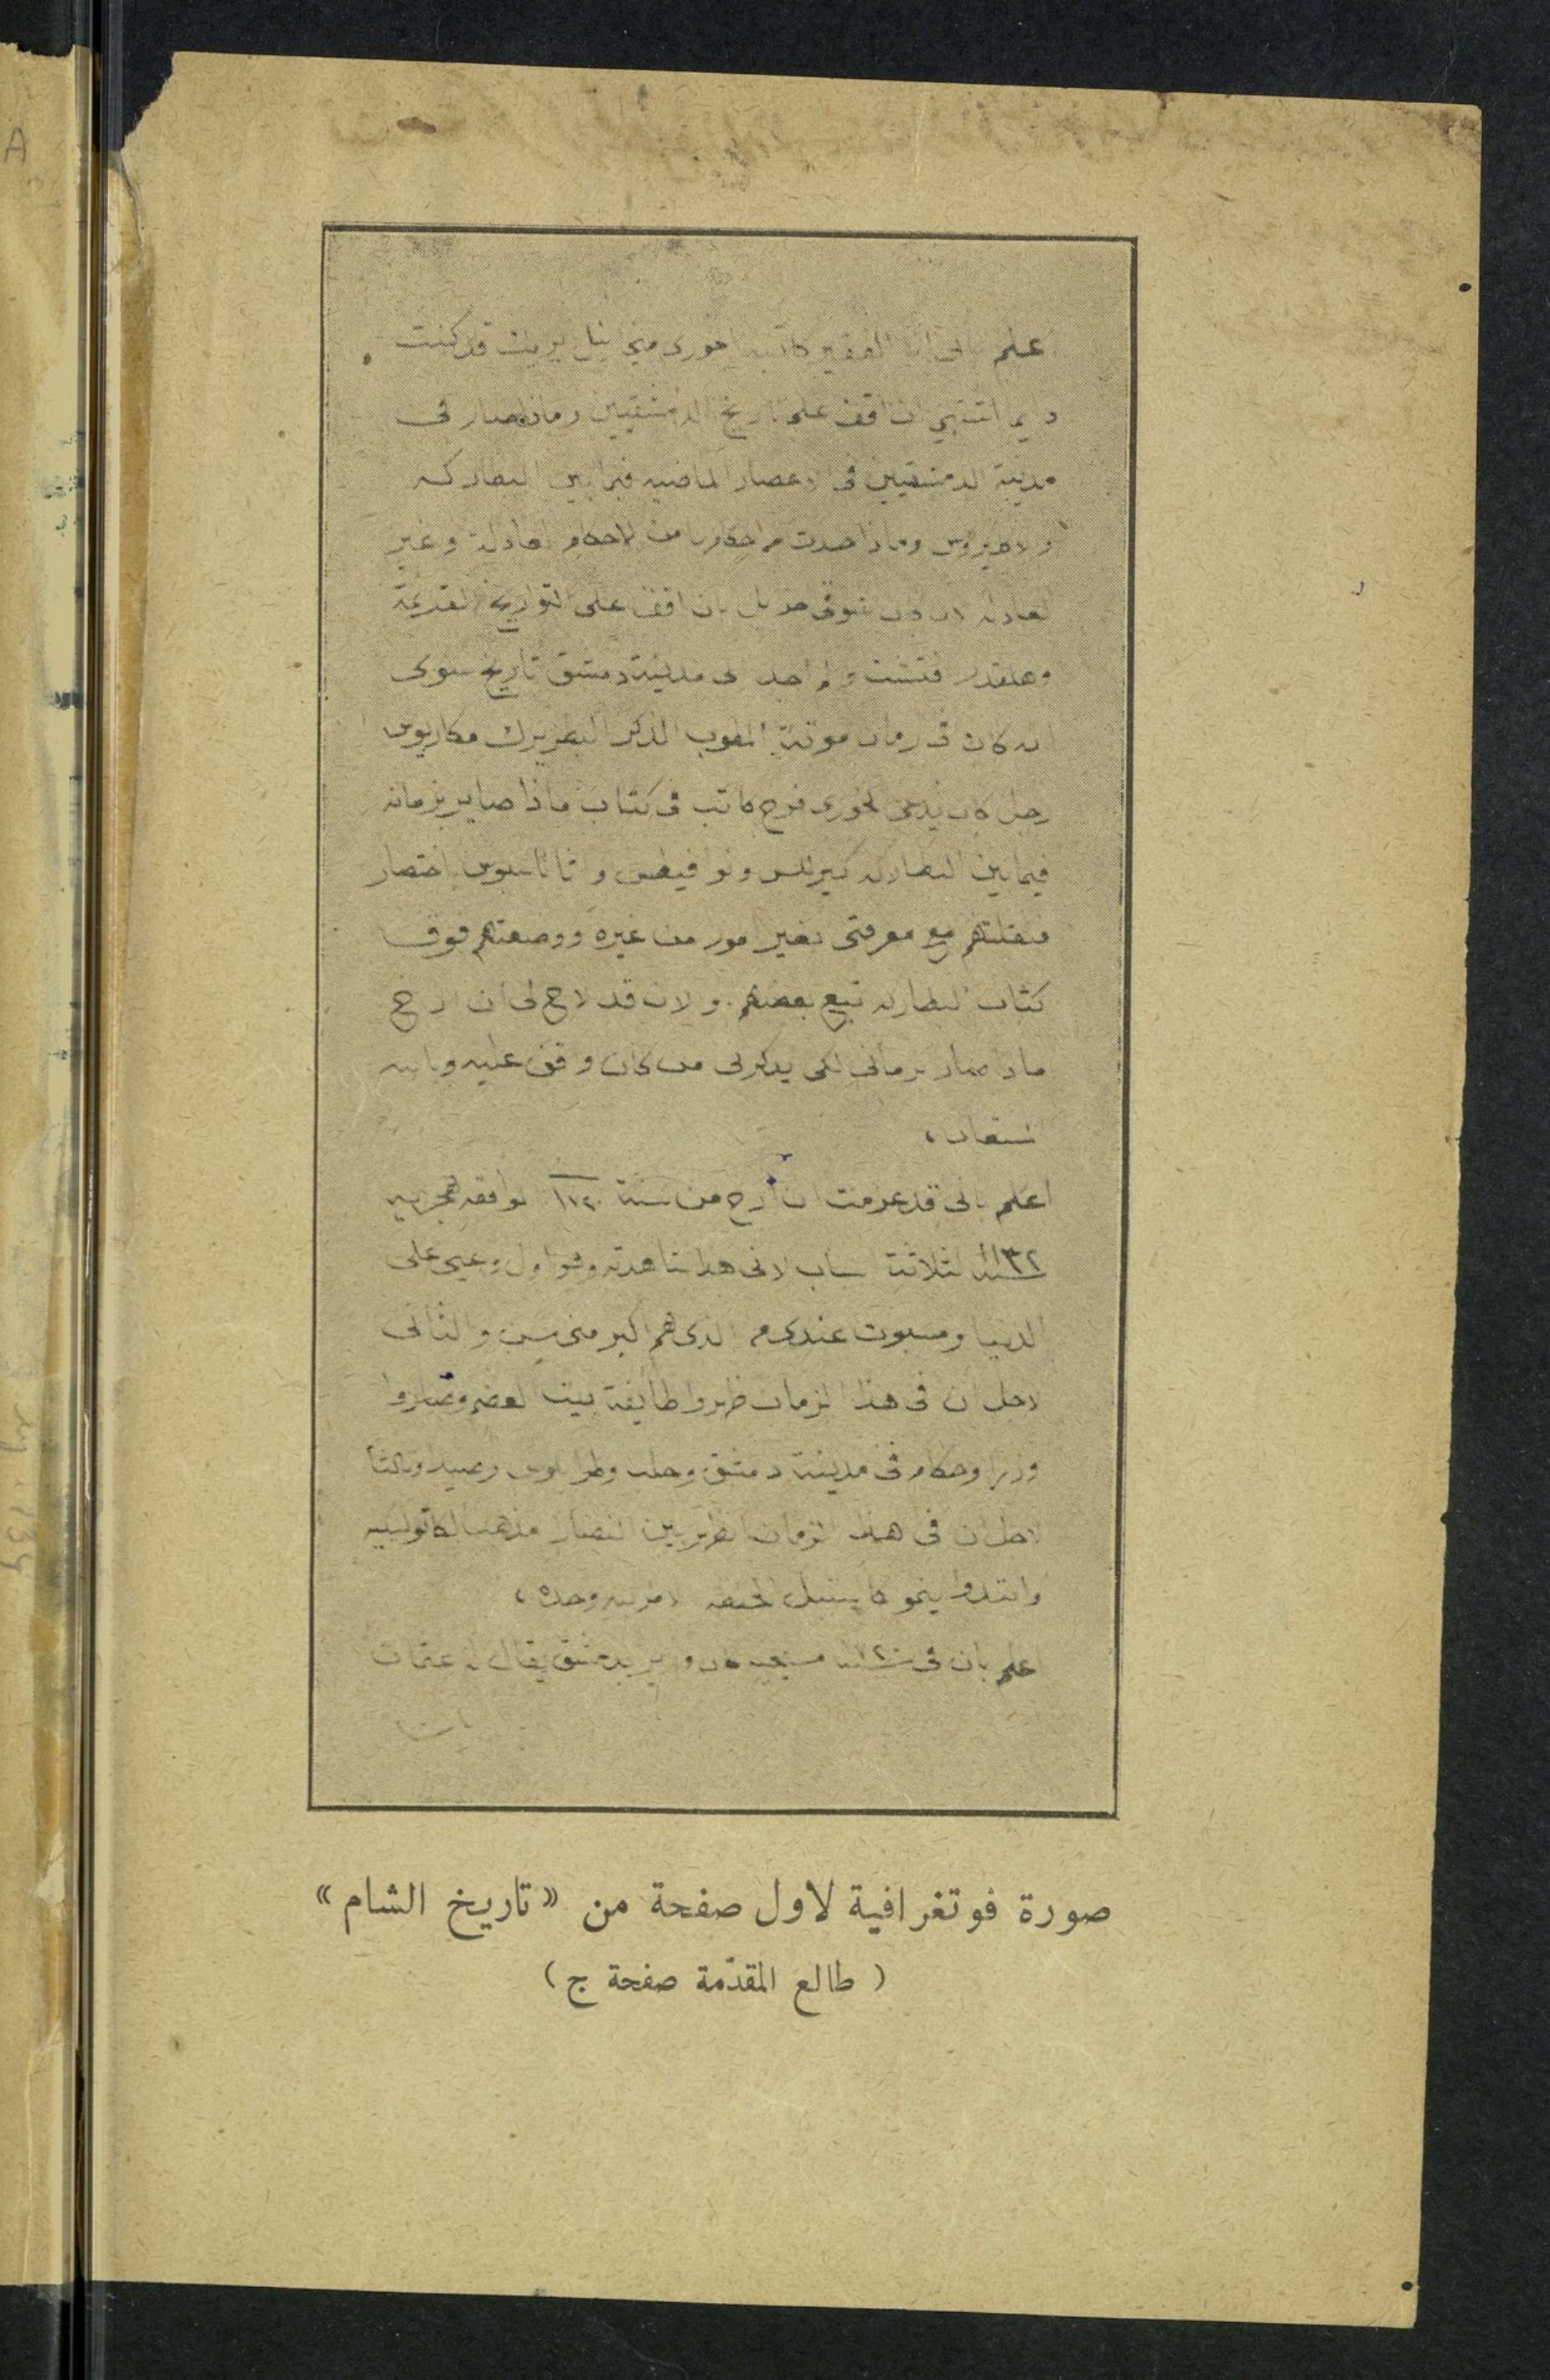 اعلم باني انا الفقير كاتبه الخوري ميخاييل بريك قد كنت
دايما اشتهي ان اقف على تاريخ الدمشقيين وماذا صار في
مدينة الدمشقيين في الاعصار الماضيه فيما بين البطاركه
والاكليروس وماذا حدث من الاحكام العادلة وغير
العادله لان شوقي جزيل بان اقف على التواريخ القديمة
وهلقدر فتشت ولم اجد في مدينة دمشق تاريخ سوى
انه كان في زمان المغبوط الذكر البطريرك مكاريوس
رجل كان يدعى الخوري فرح كاتب في كتاب ماذا صاير بزمانه
فيما بين البطاركه كيرللس ونوافيطس واثاناسيوس اختصار
فنقلتهم مع معرفتي بغير امور من غيره ووضعتهم فوق
كتاب البطاركه تبع بعضهم. والان قد لاح لي ان ارخ
ماذا صار بزماني لكي يذكرني من كان وقف عليه وبالله
المستعان،
اعلم باني قد عزمت ان أرخ من سنة ١٧٢٠ الموافقه للهجريه
سنة ١١٣٢ لثلاثة اسباب لاني هذا شاهدته وهو اول وعيي على
الدنيا ومسبوت عندي من الذي هم اكبر مني بسنين والثاني
لاجل ان في هذا الزمان ظهروا طايفة بيت العضم وصاروا
وزرا وحكام في مدينة دمشق وحلب وطرابلوس وصيدا وثالثا
لاجل ان في هذا الزمان ظهر بين النصارا مذهب الكاتوليكيه
وابتدوا ينمو
اعلم بان في سنة ١٧٢٠ مسيحيه كان وزير بدمشق يقال له عتمان
باشا
صورة فوتغرافية لاول صفحة من «تاريخ الشام»
( طالع المقدّمة صفحة ج )